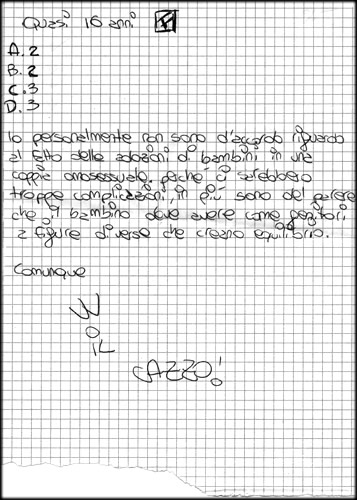 Quasi 16 anni F
A. 2
B. 2
C. 3
D. 3
Io personalmente non sono d'accordo riguardo
al fatto delle adozioni di bambini, in una
coppia omosessuale, perché ci sarebbero
troppe complicazioni, in più sono del parere
che il bambino deve avere come genitori
2 figure diverse che creano equilibrio.
Comunque
W
o
IL
CAZZO!